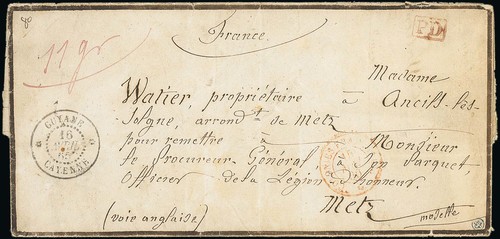 France.
P.D.
11 gr
Madame
Watier, propriétaire à Ancill-lès-
Solgne, arrondt. de Metz
pour remettre à Monsieur
le Procureur Général
Officier de la Légion d'honneur.
Metz
(voie anglaise)
moselle
GUYANE
16
CAYENNE